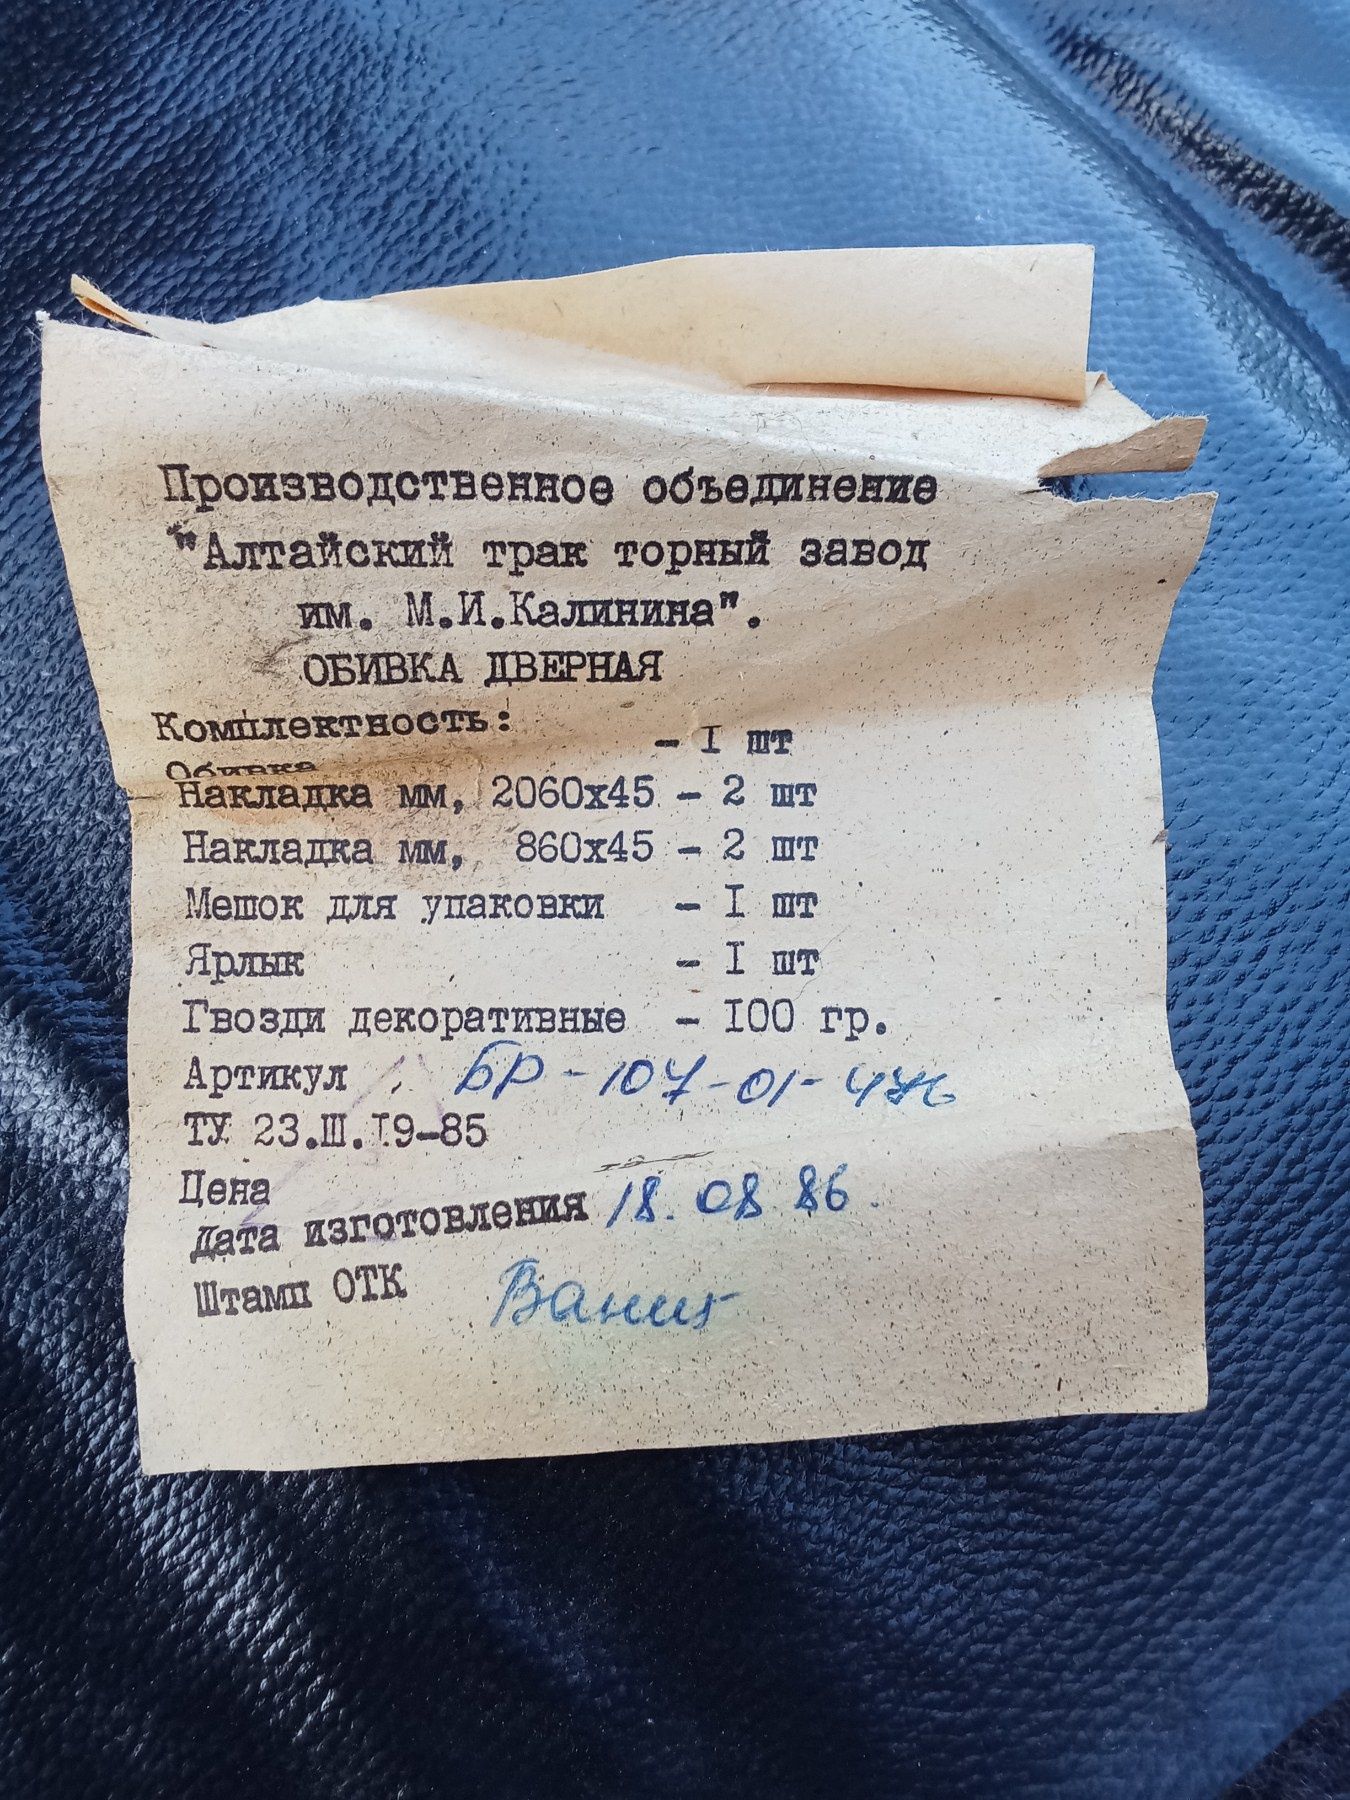 Производственное объединение
"Алтайский трак торный завод
им. М.И.Калинина".
ОБИВКА ДВЕРНАЯ
Комплектность:
Обивка - I шт
Накладка мм, 2060х45 - 2 шт
Накладка мм, 860х45 - 2 шт
Мешок для упаковки - I шт
Ярлык - I шт
Гвозди декоративные - I00 гр.
Артикул БР-107-01-
ТУ 23.Ш.I9-85
Цена
Дата изготовления 18.08 86.
Штамп ОТК